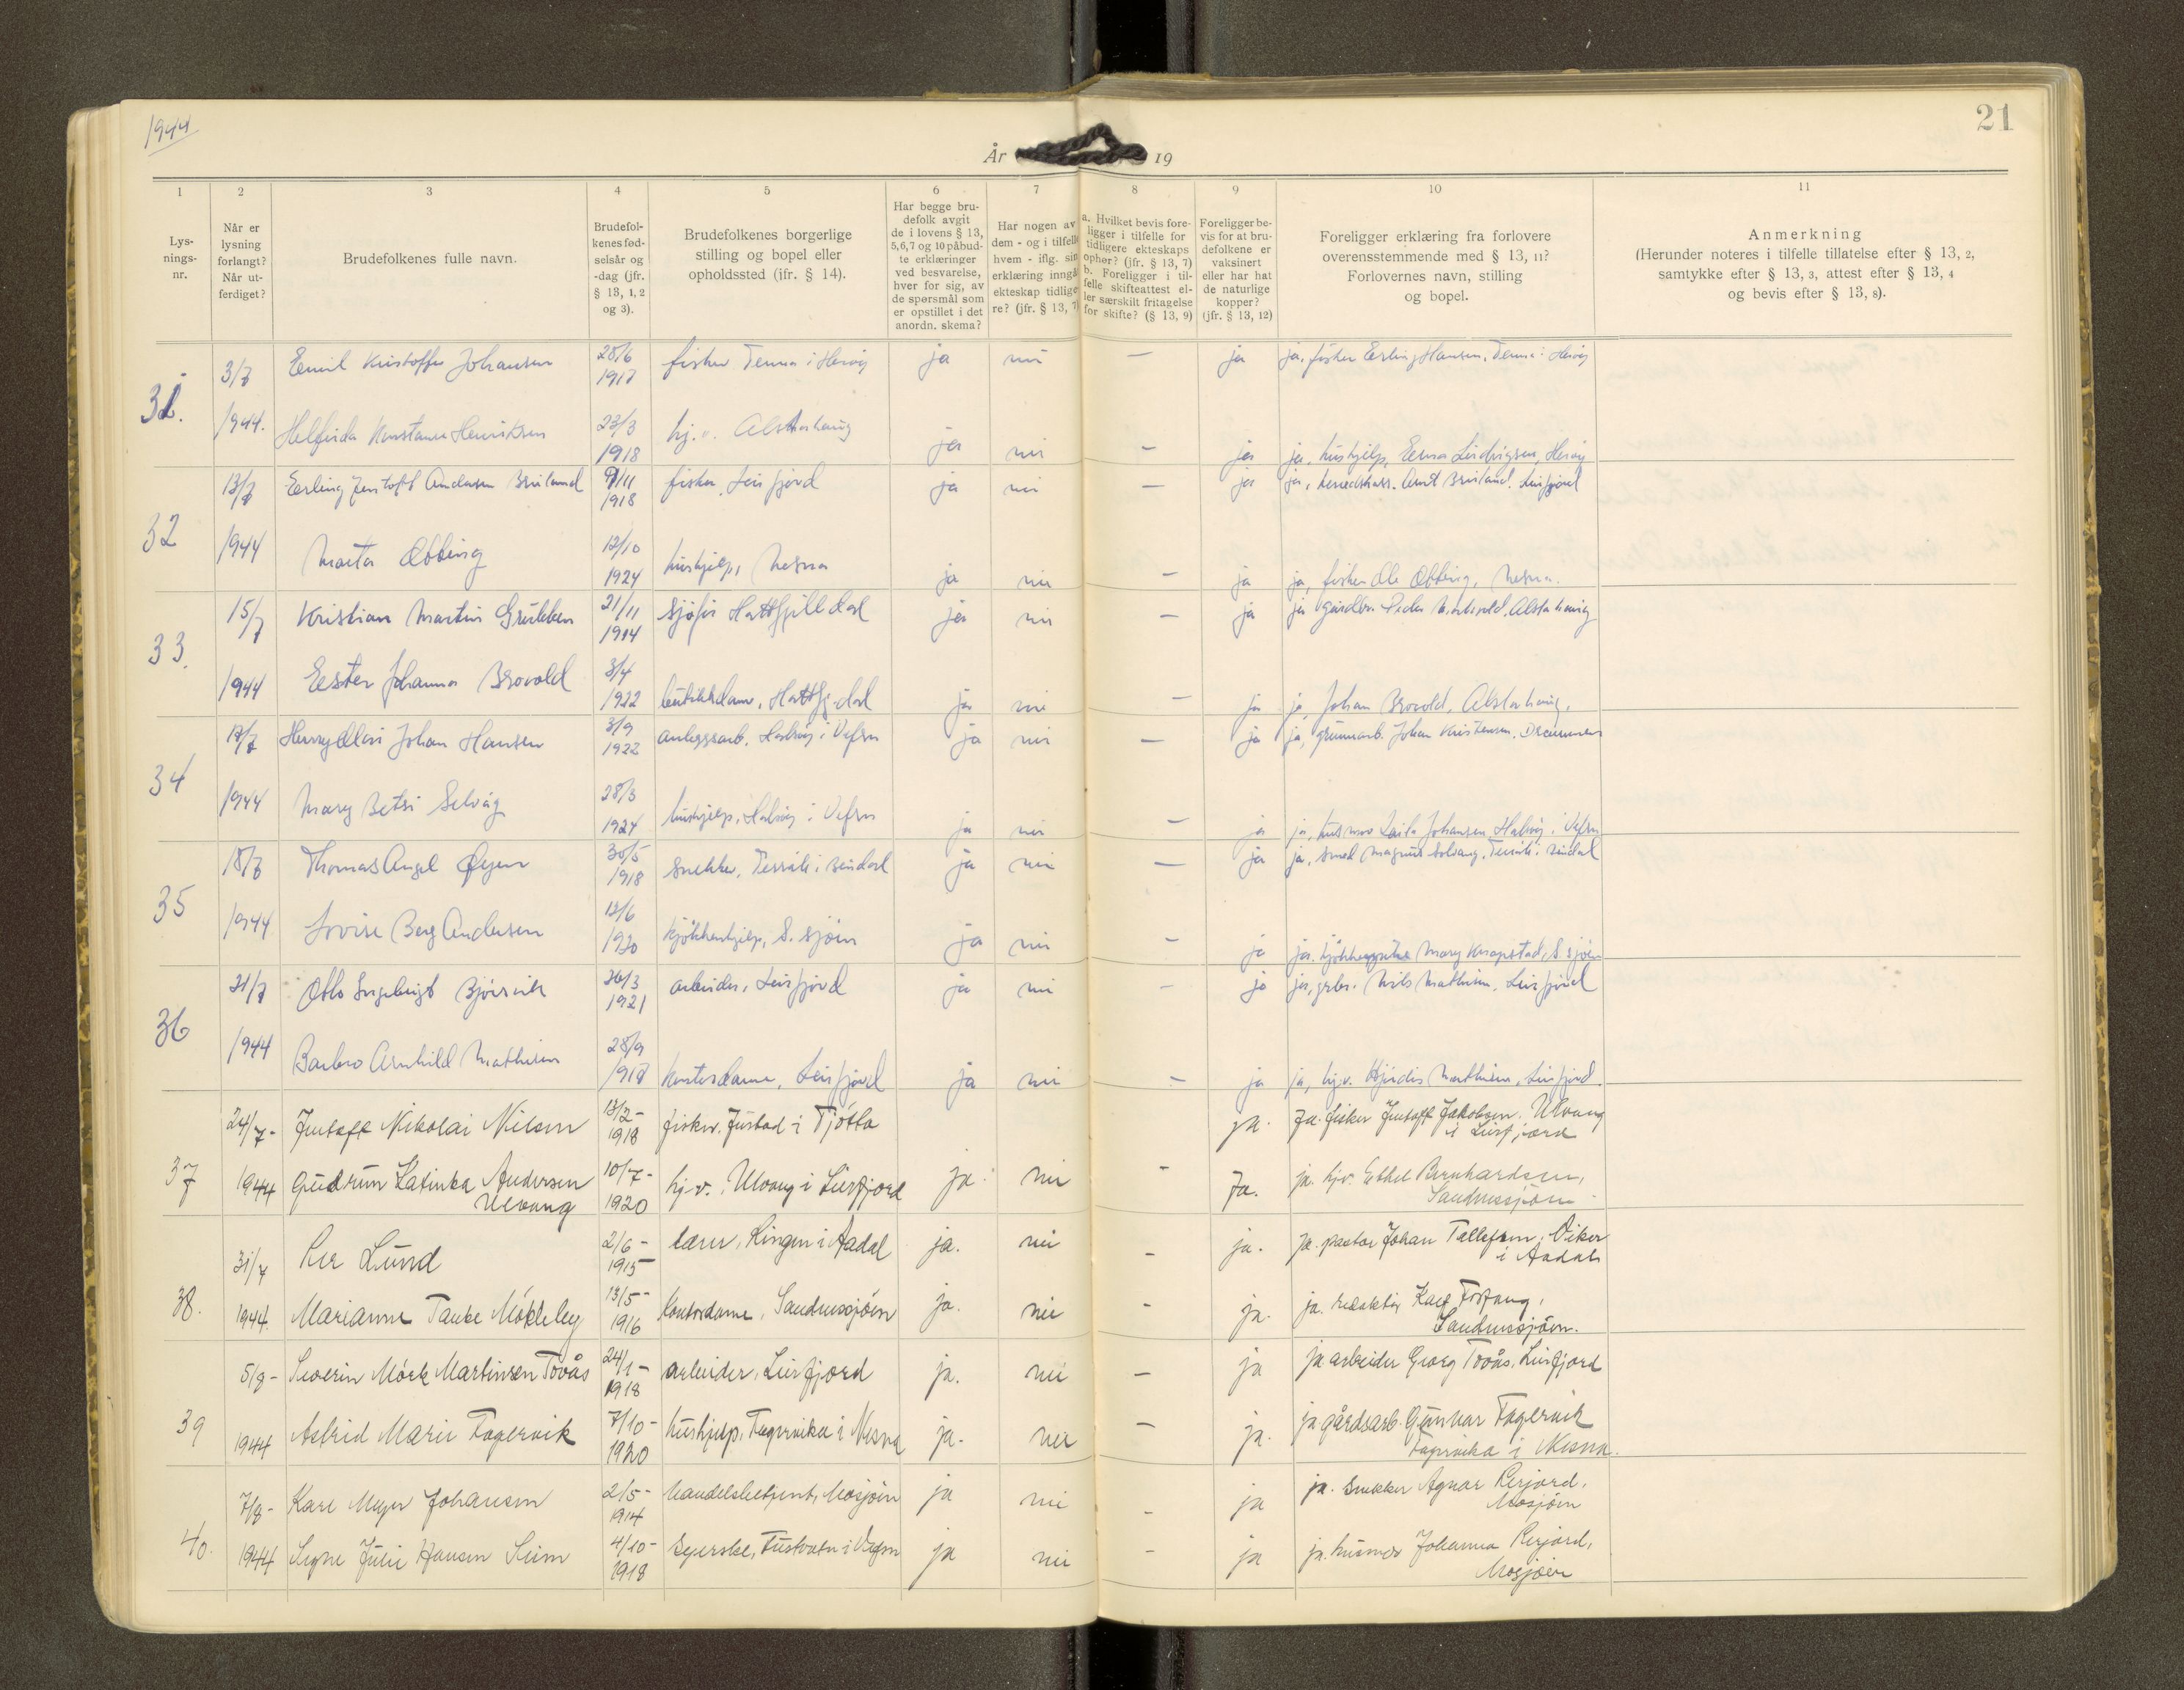 1944
21
År 19
1 2 3 4 5 6 7 8 9 10 11
Lys-
nings-
nr.
Når er
lysning
forlangt?
Når ut-
ferdiget?
Brudefolkenes fulle navn.
Brudefol-
kenes fød-
selsår og
-dag (jfr.
§ 13, 1, 2
og 3).
Brudefolkenes borgerlige
stilling og bopel eller
opholdssted (jfr. § 14).
Har begge bru-
defolk avgit
de i lovens § 13,
5,6,7 og 10 påbud-
te erklæringer
ved besvarelse,
hver for sig, av
de spørsmål som
er opstillet i det
anordn. skema?
Har nogen av
dem - og i tilfelle
hvem - iflg. sin
erklæring inngåt
ekteskap tidlige-
re? (jfr. § 13, 7)
a. Hvilket bevis fore-
ligger i tilfelle for
tidligere ekteskaps
ophør? (jfr. § 13, 7)
b. Foreligger i til-
felle skifteattest el-
ler særskilt fritagelse
for skifte? (§ 13, 9)
Foreligger be-
vis for at bru-
defolkene er
vaksinert
eller har hat
de naturlige
kopper?
(jfr. § 13, 12)
Foreligger erklæring fra forlovere
overensstemmende med § 13, 11?
Forlovernes navn, stilling
og bopel.
Anmerkning
(Herunder noteres i tilfelle tillatelse efter § 13, 2,
samtykke efter § 13, 3, attest efter § 13, 4
og bevis efter § 13, 8).
31. 3/7 Emil Kristoffer Johansen 28/6 1917 fisker Tenna i Herøy ja nei — ja ja, fisker Erling Hansen, Tenna i Herøy
1944. Konstanse Henriksen 23/3 1918 hj.v. Alstahaug ja nei — ja ja, hushjelp, Erna Ludvigsen, Herøy
32 13/7 Erling Jentoft Andersen Breiland 9/11 1918 fisker, Leirfjord ja nei — ja ja, Arnt Breiland, Leirfjord
1944 Marta Obbing 12/10 1924 hushjelp, Nesna ja nei — ja ja, fisker Ole Obbing, Nesna.
33. 15/7 Kristian Martin Grubben 21/11 1914 sjåfør Hattfjelldal ja nei — ja ja gårdbr. Peder Alstahaug
1944 Ester Johanna Brovold 3/4 1922 butikkdame, Hattfj.dal ja nei — ja ja, Johan Brovold, Alstahaug,
34 17/7 Henry Johan Hansen 3/9 1922 anleggsarb. Halvåg i Vefsn ja nei — ja ja, Johan Kristensen, Drammen
1944 Mary Betsi Selvåg 28/3 1924 hushjelp, Halvåg i Vefsn ja nei — ja ja, husmor Laila Johansen, Halvåg i Vefsn
35 18/7 Thomas Angel Øyen 30/5 1918 snekker, Terråk i Bindal ja nei — ja ja, smed Magnus Solvang, Terråk i Bindal
1944 Lovise Berg Andersen 12/6 1920 kjøkkenhjelp, S.sjøen ja nei — ja ja. Mary Knapstad, S.sjøen
36 21/7 Otto Ingebrigt Bjørvik 26/3 1921 arbeider, Leirfjord ja nei — ja ja, grbr. Nils Mathisen, Leirfjord
1944 Barbro Arnhild Mathisen 28/9 1918 kontordame, Leirfjord ja nei — ja ja, hj.v. Hjørdis Mathisen, Leirfjord.
37 24/7- Jentoft Nikolai Nilsen 13/2- 1918 fisker. i Tjøtta ja. Ja. fisker Jentoft Jakobsen. Ulvang
i Leirfjord
1944 Gudrun Katinka Andersen 10/7- 1920 hj.v., Ulvang i Leirfjord ja. nei - Ja. ja. hj.v. Ethel Bernhardsen,
Ulvang Sandnessjøen
38. 31/7 Per Lund 2/6- 1915 lærer, Ringen i Aadal ja. nei - ja. ja. pastor Johan Tollefsen, Viker
i Aadal
1944. Marianne Tanke Møkleby 13/5- 1916 Kontordame, Sandnessjøen ja. nei - ja. ja. redaktør Karl Forfang,
Sandnessjøen.
39 5/8- Severin Mørk Martinsen Tovås 24/1- 1918 arbeider, Leirfjord ja. nei — ja ja arbeider Georg Tovås, Leirfjord
1944 Astrid Marie Fagervik 7/10- 1920 hushjelp, Fagervika i Nesna ja- nei — ja. ja gårdsarb. Gunnar Fagervik
Fagervika i Nesna.
40. 7/8- Kare Meyer Johansen 2/5- 1914 handelsbetjent, Mosjøen ja nei - ja ja. snekker Agnar Rerjord,
Mosjøen
1944 Signe Julie Hansen Seim 4/10- 1918 syerske, Fustvatn i Vefsn ja nei - ja ja. husmor Johanna Rerjord,
Mosjøen